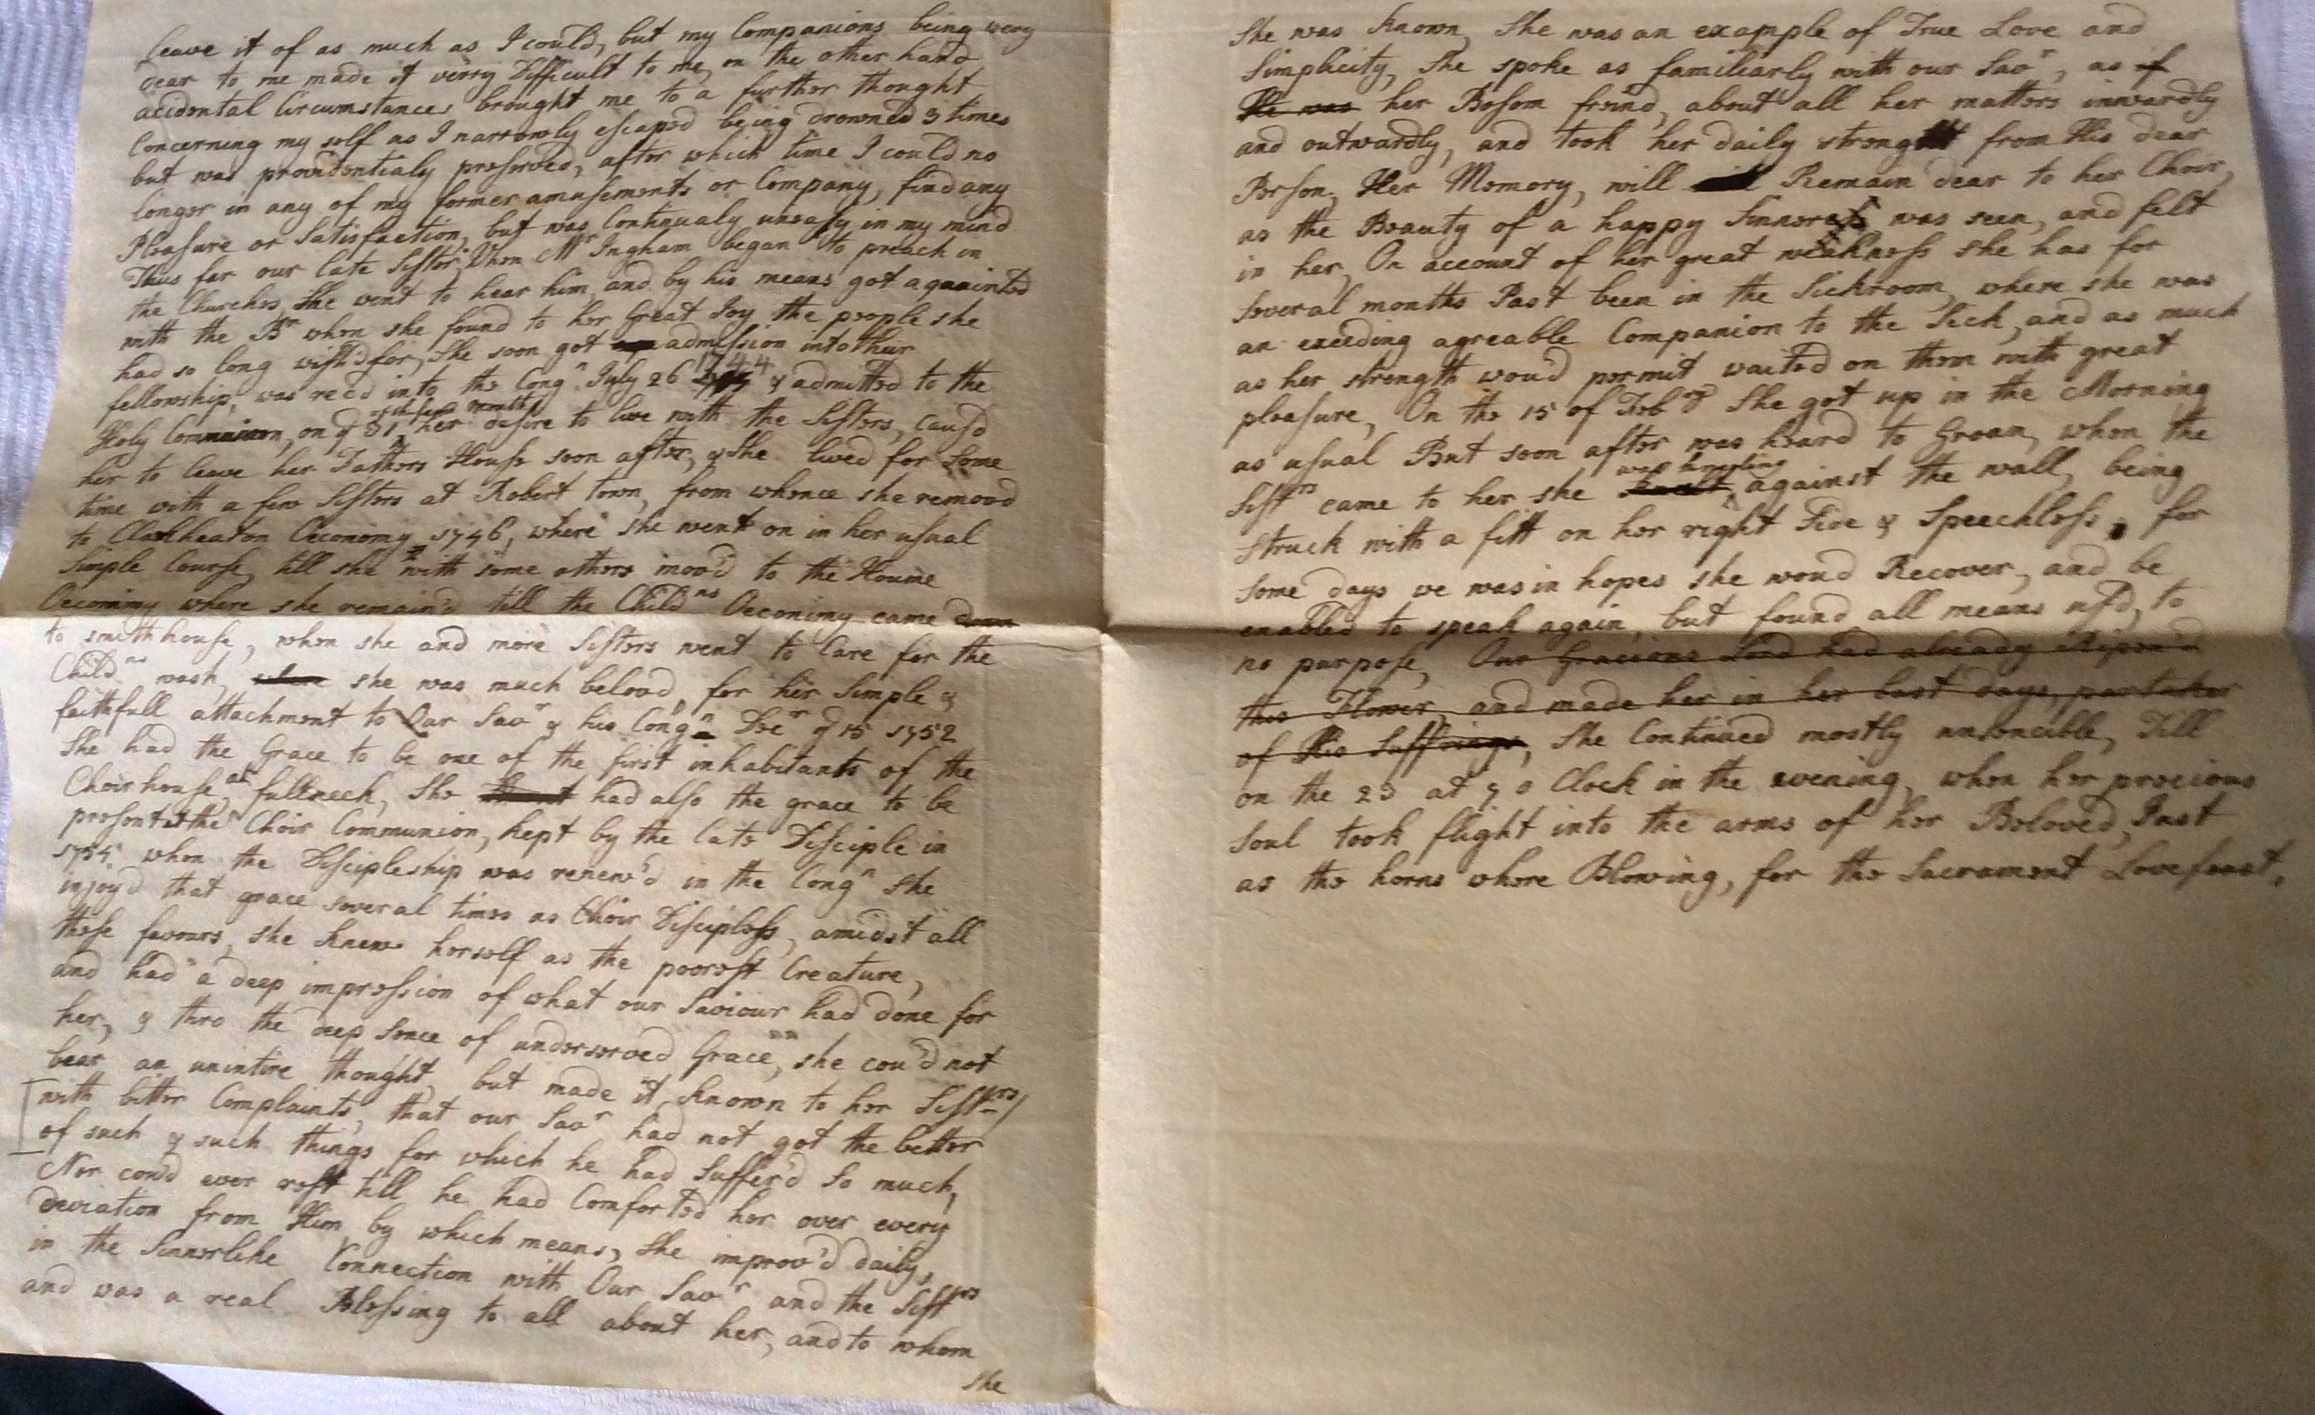 leave it of as much as I could, but my Companions being very
dear to me made it verry Difficult to me, on the other hand
accidental Circumstances brought me to a further thought
Concerning my self as I narrowly escaped being drowned 3 times
but was providentialy preserved, after which time I could no
longer in any of my former amusements or Company, find any
Pleasure or Satisfaction, but was Continualy uneasy in my mind
Thus far our late Sister. When Mr Ingham began to preach in
the Churches, She went to hear him, and by his means got aquainted
with the Brn when she found to her Great Joy the people she
had so long wish'd for, She soon got admission into their
fellowship, was rec'd into the Congn July 26 1744 & admitted to the
Holy Communion, on ye 31 of the same month her desire to live with the Sisters, caus'd
her to leave her Fathers House soon after, & She lived for Some
time with a few Sisters at Robert town, from whence she remov'd
to Cleckheaton Oeconomy 1746, where she went on in her usual
Simple Course, till she with some others mov'd to the Houme
Oeconimy where she remain'd till the Childns Oeconimy came down
to smith house, when she and more Sisters went to Care for the
Childns wash, where she was much belov'd, for her Simple &
faithfull attachment to Our Savr & his Congn Decr ye 15 1752
She had the Grace to be one of the first inhabitants of the
Choirhouse, at fullneck, She had also the grace to be
present at the Choir Communion, kept by the late Disciple in
when the Discipleship was renew'd in the Congn She
injoy'd that grace several times as Choir Discipless, amidst all
these favours, she knew herself as the poorest Creature,
and had a deep impression of what our Saviour had done for
her, & thro the deep sence of underserved Grace, she cou'd not
bear an unintire thought, but made it known to her Sistrs/
with bitter Complaints, that our Savr had not got the better
of such & such things for which he had Suffer'd So much,
Nor cou'd ever rest till he had Comforted her over every
Deviation from Him by which means, She improv'd daily,
in the Sinnerlike Connection with Our Savr and the Sistrs
and was a real Blessing to all about her, and to whom
she
She was known, She was an example of True Love and
Simplicity, She spoke as familiarly with our Savr, as if
He was her Bosom freind, about all her matters inwardly
and outwardly, and took her daily strength from His dear
Person, Her Memory, will Remain dear to her Choir,
as the Beauty of a happy Sinneress was seen, and felt
in her, On account of her great weakness she has for
several months Past been in the Sickroom, where she was
an exceding agreable Companion to the Sick, and as much
as her strength wou'd permit waited on them with great
pleasure, On the 15 of Febry She got up in the Morning
as usual But soon after was heard to Groan, when the
Sistrs came to her she knelt was kneeling against the wall, being
struck with a fitt on her right Side & Speechless, for
some days we was in hopes she woud Recover, and be
enabled to speak again, but found all means us'd, to
no purpose, Our Gracious Lord had already Ripen'd
this Flower, and made her in her last days, partaker
of His Suffrings, She Continued mostly unsencible, Till
on the 23 at 9 o Clock in the evening, when her precious
soul took flight into the arms of her Beloved, Just
as the horns where Blowing, for the Sacrament Lovefeast.